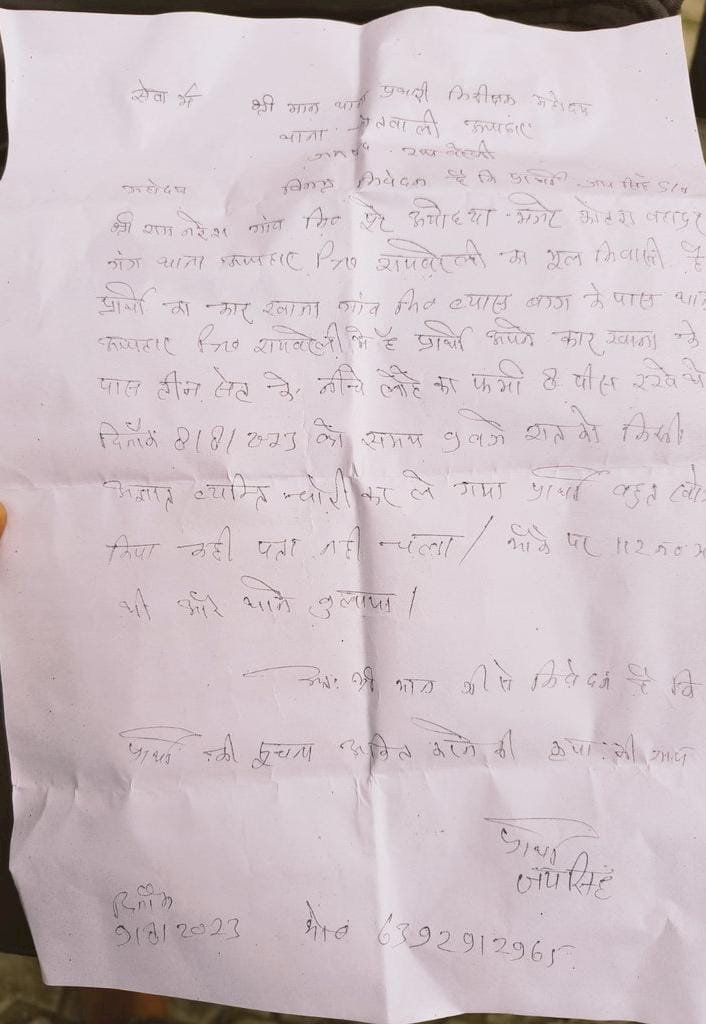 सेवा में श्री मान थाना प्रभारी निरीक्षक महोदय
थाना कोतवाली ऊंचाहार
जनपद रायबरेली
महोदय विनम्र निवेदन है कि प्रार्थी जय सिंह S/o
श्री राम नरेश गांव नि० पूरे अयोध्या मजरे कोटरा बहादुर
गंज थाना ऊंचाहार जि० रायबरेली का मूल निवासी है
प्रार्थी का कारखाना गांव नि० के पास थाना
ऊंचाहार जि० रायबरेली में है प्रार्थी अपने कारखाना के
पास टीन सेट के नीचे लोहे का फर्मा 8 पीस रखे थे
दिनाँक 8/8/2023 को समय 9 बजे रात को किसी
अज्ञात व्यक्ति चोरी कर ले गया प्रार्थी बहुत
किया कही पता नही चला / मौके पर 112 न०
थी और थाने बुलाया /
अतः श्री मान जी से निवेदन है कि
प्रार्थी की सूचना अंकित करने की कृपा की जाय
प्रार्थी
जय सिंह
दिनाँक
9/8/2023 मो० न० 6392912965